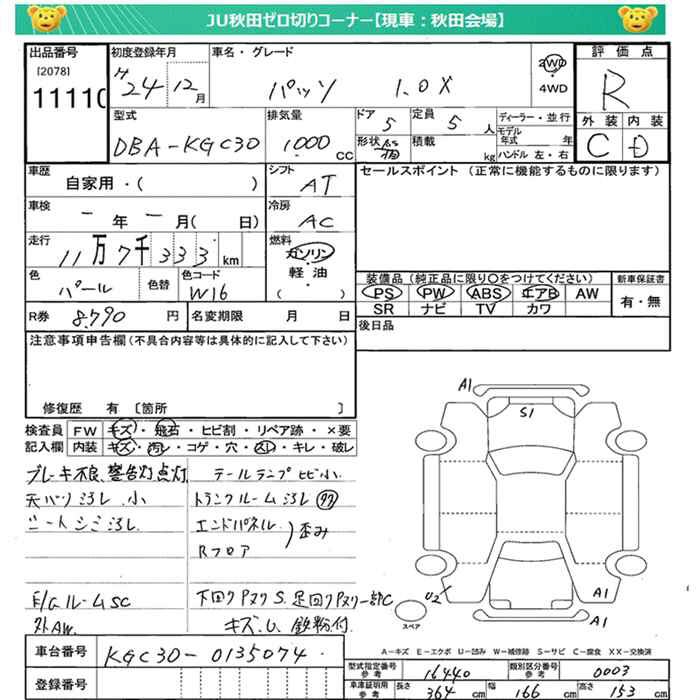 JU秋田ゼロ切りコーナー【現車：秋田会場】
出品番号 初度登録年月 車名・グレード 2WD・4WD 評価点
[2078] H24 12月 パッソ 1.0X R
11110
型式 排気量 ドア 5 定員 5人 ディーラー・並行 外装 内装
DBA-KGC30 1000cc 形状 積載 kg モデル年式 年 C D
ハンドル 左・右
車歴 自家用・( ) シフト AT セールスポイント (正常に機能するものに限ります)
車検 ー年ー月(日) 冷房 AC
走行 11万7千333km 燃料 ガソリン
軽油
・( )
色 パール 色替 色コード W16 装備品(純正品に限り○をつけてください) 新車保証書
PS PW ABS エアB AW 有・無
SR ナビ TV カワ
R券 8,790円 名変期限 月 日 後日品
注意事項申告欄(不具合内容等は具体的に記入して下さい)
修復歴 有 〔箇所 〕
検査員 FW キズ・飛石・ヒビ割・リペア跡・×要
記入欄 内装 キズ・汚レ・コゲ・穴・スレ・キレ・破レ
ブレーキ不良、警告灯点灯 テールランプヒビ小
天バリヨゴレ 小 トランクルームヨゴレ
シートシミヨゴレ エンドパネル
Rフロア 歪み
E/Gルーム SC 下回りPスク S. 足回りPスク一部C
外AW. キズ. U. 鉄粉付.
A1
S1
U2
A1
A1
スペア
A－キズ E－エクボ U－凹み W－補修跡 S－サビ C－腐食 XX－交換済
車台番号 KGC30-0135074 型式指定番号 参考 16440 類別区分番号 参考 0003
登録番号 車庫証明用 参考 長さ 364cm 幅 166cm 高さ 153cm